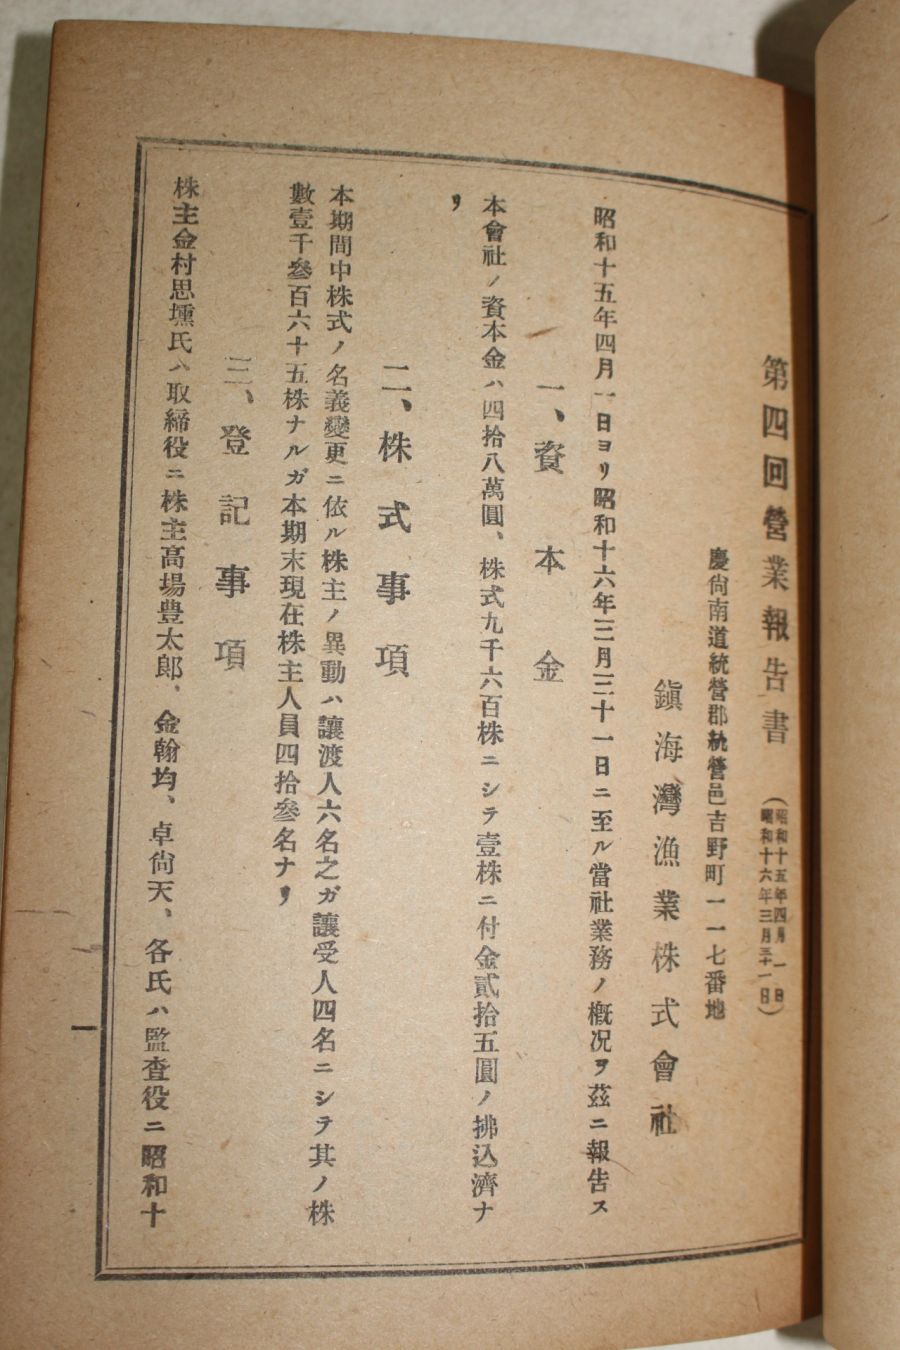 第四回營業報告書
(昭和十五年四月 一日
昭和十六年三月三十一日)
慶尙南道統營郡統營邑吉野町一一七番地
鎭海灣漁業株式會社
昭和十五年四月一日ヨリ昭和十六年三月三十一日ニ至ル當社業務ノ槪况ヲ茲ニ報告ス
一、資本金
本會社ノ資本金ハ四拾八萬圓、株式九千六百株ニシテ壹株ニ付金貳拾五圓ノ拂込濟ナ
リ
二、株式事項
本期間中株式ノ名義變更ニ依ル株主ノ異動ハ讓渡人六名之ガ讓受人四名ニシテ其ノ株
數壹千參百六十五株ナルガ本期末現在株主人員四拾參名ナリ
三、登記事項
株主金村思壎氏ハ取締役ニ株主高場豊太郎、金翰均、卓尙天、各氏ハ監査役ニ昭和十
一